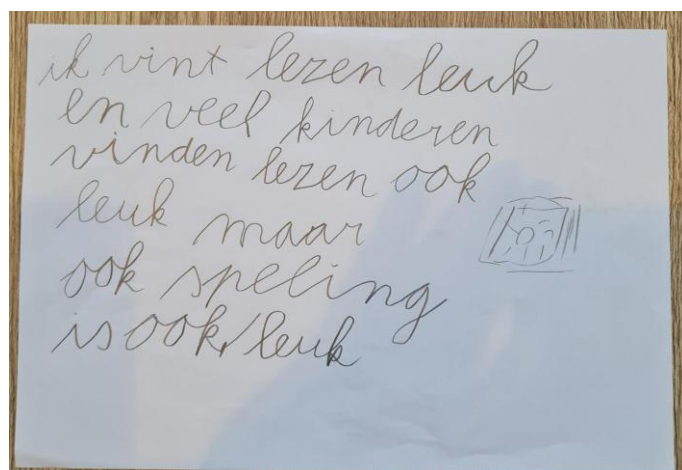 ik vint lezen leuk
en veel kinderen
vinden lezen ook
leuk maar
ook speling
is ook leuk